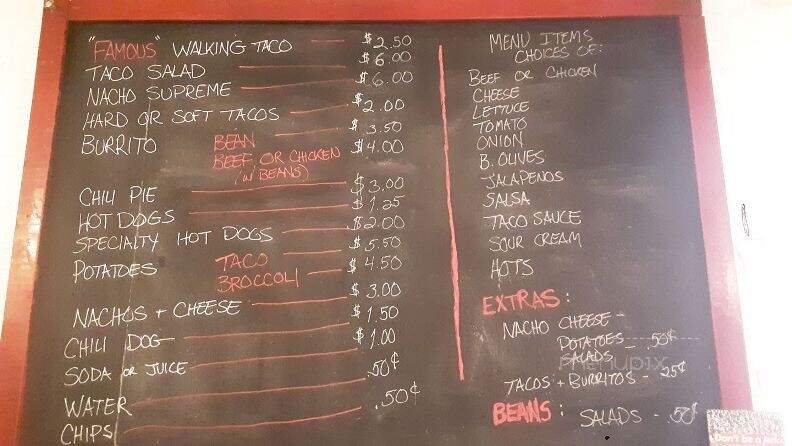 "FAMOUS" WALKING TACO $2.50
TACO SALAD $6.00
NACHO SUPREME $6.00
HARD OR SOFT TACOS $2.00
BURRITO BEAN $3.50
BEEF OR CHICKEN $4.00
(W BEANS)
CHILI PIE $3.00
HOT DOGS $1.25
SPECIALTY HOT DOGS $2.00
POTATOES TACO $5.50
BROCCOLI $4.50
NACHOS + CHEESE $3.00
CHILI DOG $1.50
SODA OR JUICE $1.00
WATER .50¢
CHIPS .50¢
MENU ITEMS
CHOICES OF:
BEEF OR CHICKEN
CHEESE
LETTUCE
TOMATO
ONION
B. OLIVES
JALAPENOS
SALSA
TACO SAUCE
SOUR CREAM
HOTS
EXTRAS:
NACHO CHEESE -
POTATOES .50¢
SALADS
menupix
TACOS + BURRITOS - .25¢
BEANS: SALADS - .50¢
Don't be a